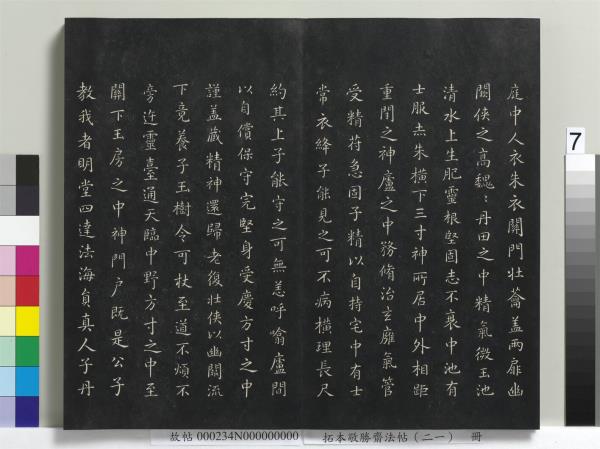 庭中人衣朱衣關門壯蘥盖兩扉幽
闕俠之高巍〻丹田之中精氣微玉池
清水上生肥靈根堅固志不衰中池有
士服赤朱橫下三寸神所居中外相距
重閇之神廬之中務脩治玄廱氣管
受精苻急固子精以自持宅中有士
常衣絳子能見之可不病橫理長尺
約其上子能守之可無恙呼噏廬間
以自償保守完堅身受慶方寸之中
謹盖藏精神還歸老復壯俠以幽闕流
下竟養子玉樹令可杖至道不煩不
旁迕靈臺通天臨中野方寸之中至
關下玉房之中神門户既是公子
教我者明堂四達法海負真人子丹
7
故帖 000234N000000000 拓本敬勝齋法帖（二一） 冊